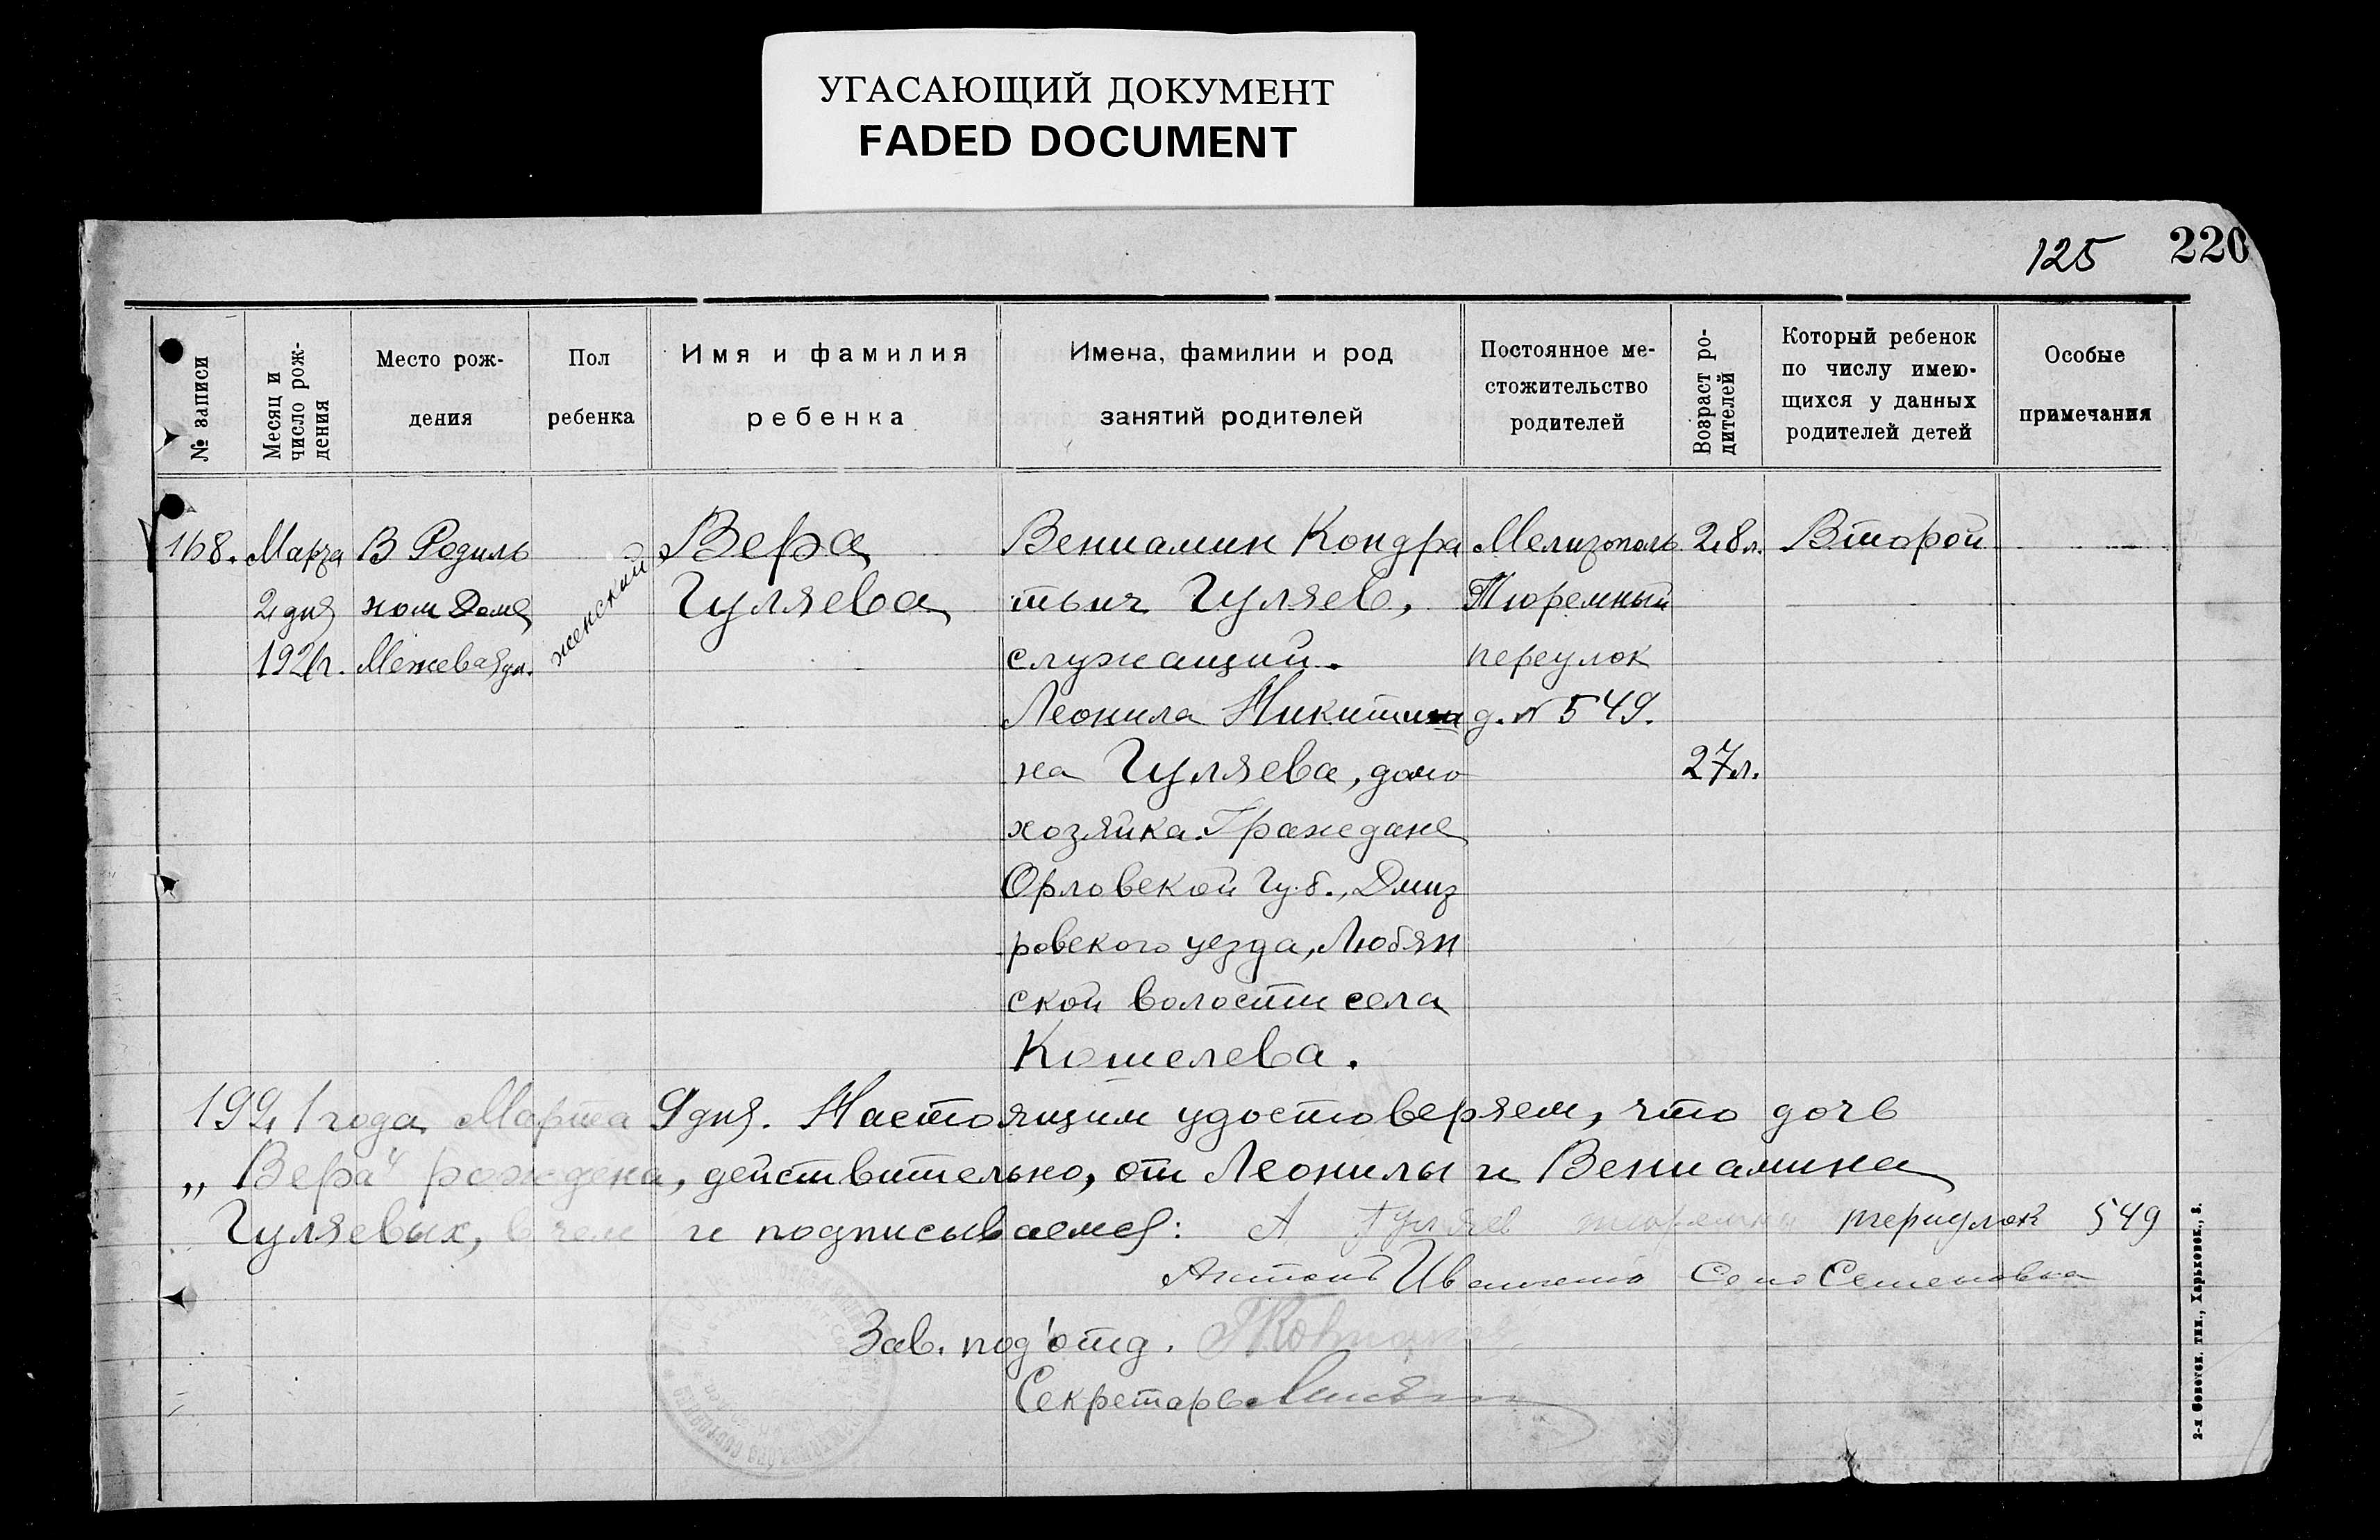 УГАСАЮЩИЙ ДОКУМЕНТ
FADED DOCUMENT
125 220
№ записи
Месяц и
число рож-
дения
Место рож-
дения
Пол
ребенка
Имя и фамилия
ребенка
Имена, фамилии и род
занятий родителей
Постоянное ме-
стожительство
родителей
Возраст ро-
дителей
Который ребенок
по числу имею-
щихся у данных
родителей детей
Особые
примечания
168.
Марта
2 дня
1921г.
В Родиль
ном Доме
Межевая ул.
женский
Вера
Гуляева
Вениамин Кондра
тьич Гуляев,
служащий.
Леонила Никитиш
на Гуляева, домо
хозяйка. Граждане
Орловской Губ., Дмит
ровского уезда, Любян
ской волости села
Кошелева.
Мелитополь
Тюремный
переулок
д. № 549.
28л.
27л.
Второй
1921 года Марта 9 дня. Настоящим удостоверяем, что дочь
„Вера“ рождена, действительно, от Леонилы и Вениамина
Гуляевых, в чем и подписываемся: А Гуляев переулок 549
Антон Село Семеновка
Зав. под'отд.
Секретарь
2-я Советск. тип., Харьковск., 8.